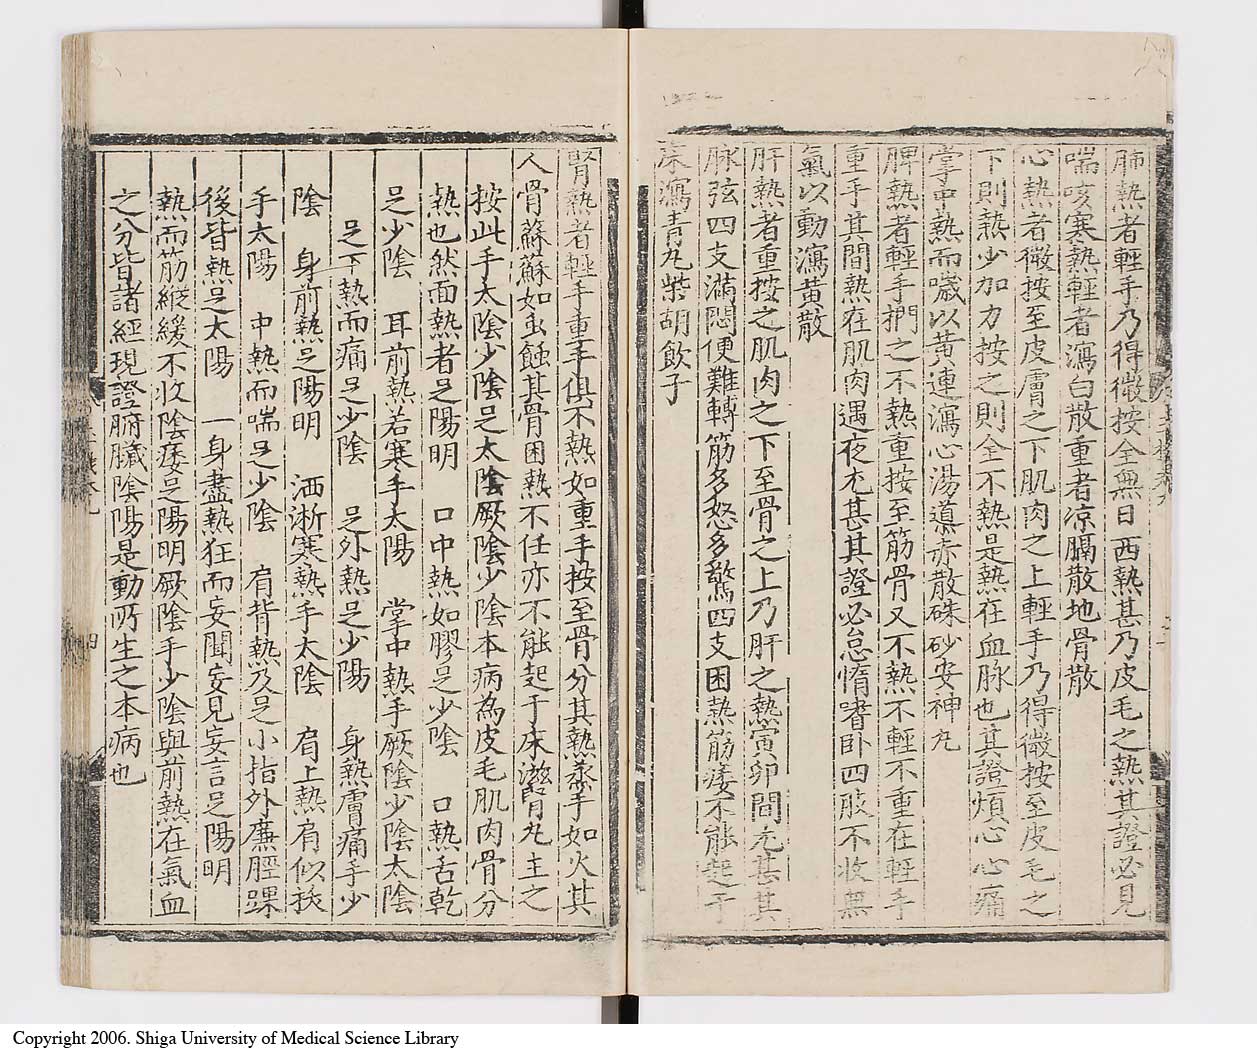 肺熱者輕手乃得微按全無日西熱甚乃皮毛之熱其證必見
喘咳寒熱輕者瀉白散重者凉膈散地骨散
心熱者微按至皮膚之下肌肉之上輕手乃得微按至皮毛之
下則熱少加力按之則全不熱是熱在血脉也其證煩心心痛
掌中熱而噦以黃連瀉心湯導赤散硃砂安神丸
脾熱者輕手捫之不熱重按至筋骨又不熱不輕不重在輕手
重手其間熱在肌肉遇夜尤甚其證必怠惰嗜卧四肢不收無
氣以動瀉黃散
肝熱者重按之肌肉之下至骨之上乃肝之熱寅卯間尤甚其
脉弦四支滿悶便難轉筋多怒多驚四支困熱筋痿不能起于
床瀉青丸柴胡飲子
腎熱者輕手重手俱不熱如重手按至骨分其熱蒸手如火其
人骨蘇蘇如虫蝕其骨困熱不任亦不能起于床滋腎丸主之
按此手太陰少陰足太陰厥陰少陰本病為皮毛肌肉骨分
熱也然面熱者足陽明　口中熱如膠足少陰　口熱舌乾
足少陰　耳前熱若寒手太陽　掌中熱手厥陰少陰太陰
足下熱而痛足少陰　足外熱足少陽　身熱膚痛手少
陰　身前熱足陽明　洒淅寒熱手太陰　肩上熱肩似拔
手太陽　中熱而喘足少陰　肩背熱及足小指外廉脛踝
後皆熱足太陽　一身盡熱狂而妄聞妄見妄言足陽明
熱而筋縱緩不收陰痿足陽明厥陰手少陰與前熱在氣血
之分皆諸經現證腑臟陰陽是動所生之本病也
四
Copyright 2006. Shiga University of Medical Science Library